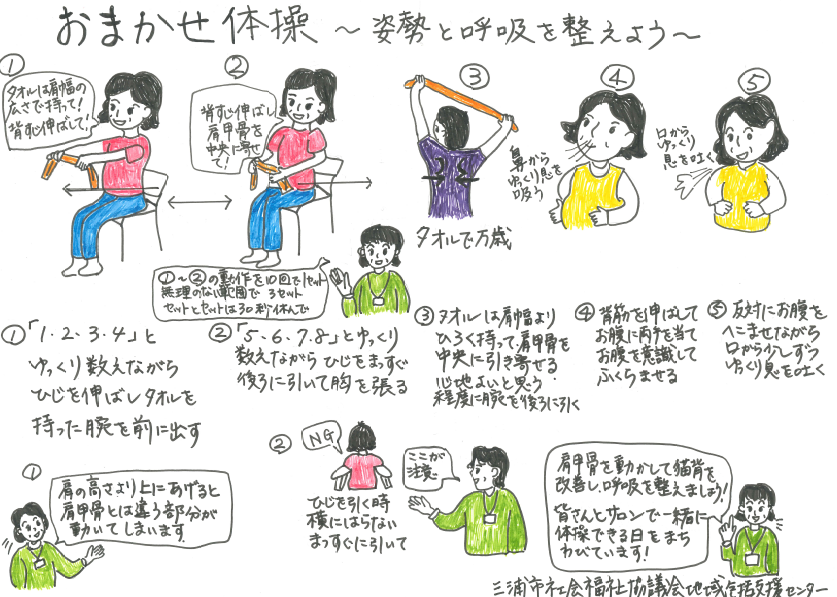 おまかせ体操 ～姿勢と呼吸を整えよう～
①
タオルは肩幅の
広さで持って!
背すじ伸ばして!
②
背すじ伸ばし
肩甲骨を
中央に寄せ
て!
③
タオルで万歳
④
鼻から
ゆっくり息を
吸う
⑤
口から
ゆっくり
息を吐く
①～②の動作を10回で1セット
無理のない範囲で 3セット
セットとセットは30秒休んで
①「1・2・3・4」と
ゆっくり数えながら
ひじを伸ばしタオルを
持った腕を前に出す
②「5・6・7・8」とゆっくり
数えながら ひじをまっすぐ
後ろに引いて胸を張る
③タオルは肩幅より
ひろく持って、肩甲骨を
中央に引き寄せる
心地よいと思う
程度に腕を後ろに引く
④背筋を伸ばして
お腹に両手を当て
お腹を意識して
ふくらませる
⑤反対にお腹を
へこませながら
口から少しずつ
ゆっくり息を吐く
①
肩の高さより上にあげると
肩甲骨とは違う部分が
動いてしまいます
②
NG
ひじを引く時
横にはらない
まっすぐに引いて
ここが
注意
肩甲骨を動かして猫背を
改善し、呼吸を整えましょう!
皆さんとサロンで一緒に
体操できる日をまち
わびています!
三浦市社会福祉協議会地域包括支援センター